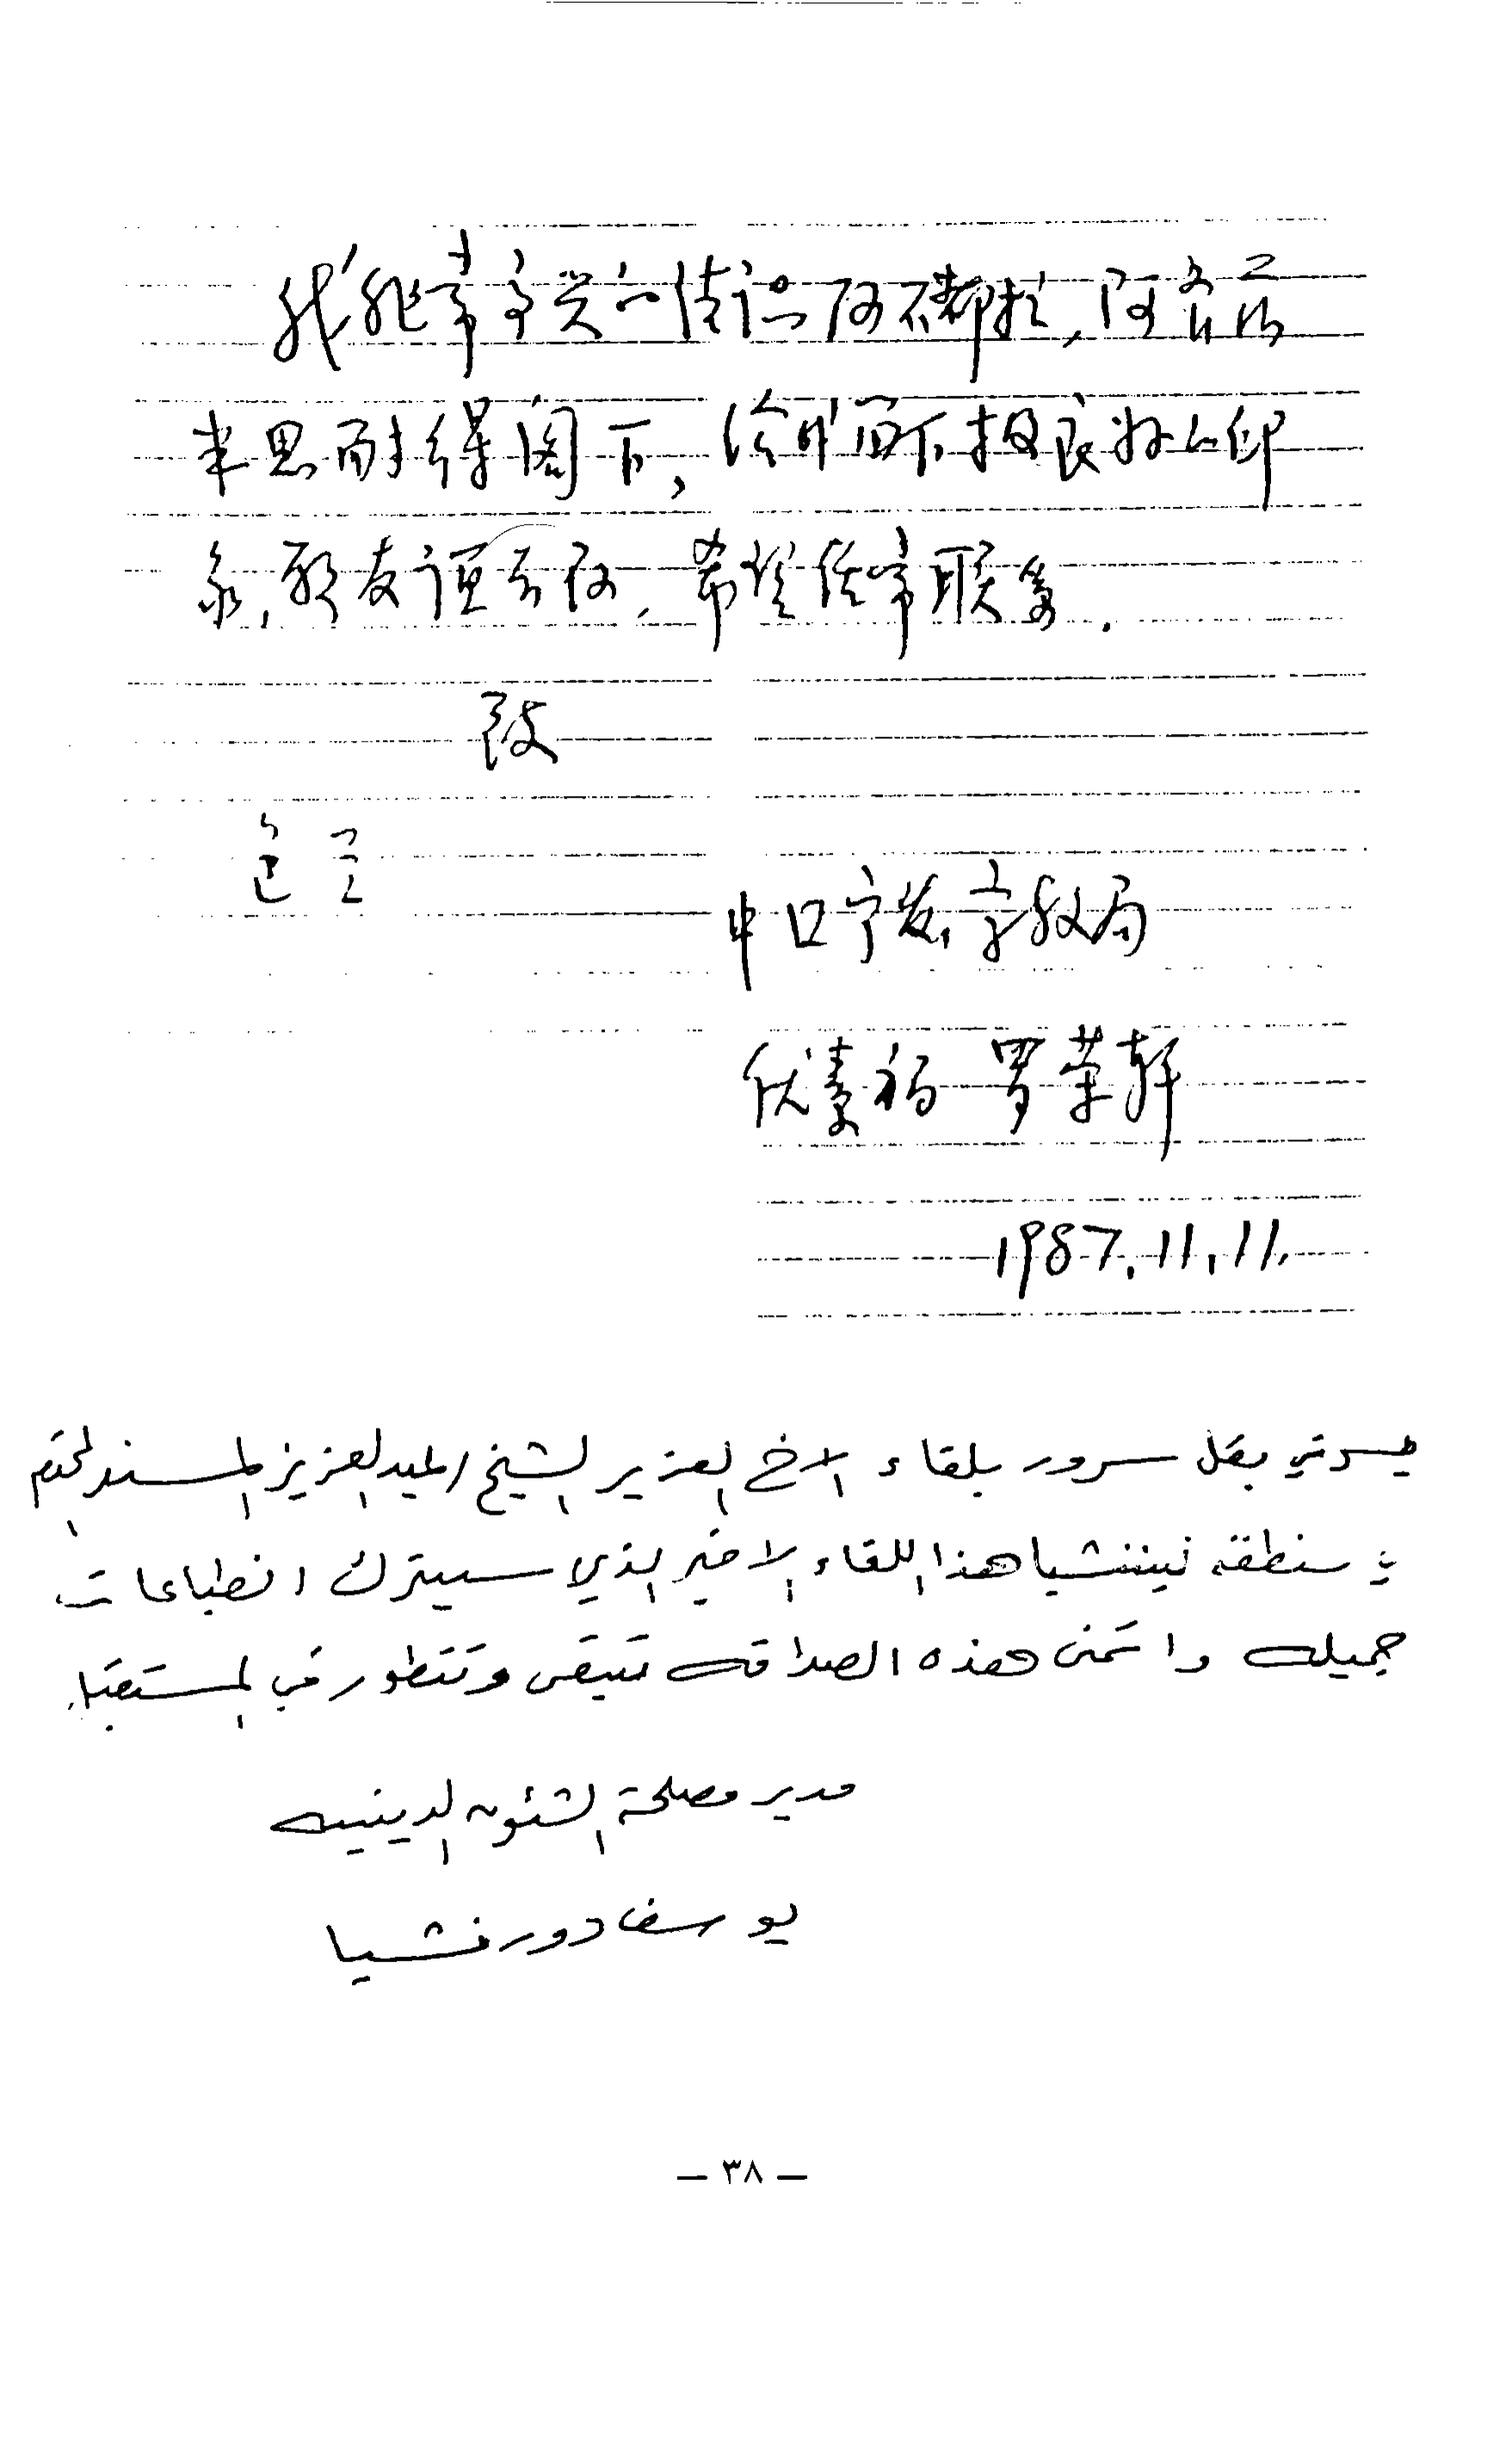 我非常高兴结识阿不都拉,阿齐兹
米思耐得阁下,您留下极良好的印
象,那友谊 ,希望经常联系.
致
礼
中国宁夏宗教局
伏素福 罗荣轩
1987.11.11.
يسرني بكل سرور بلقاء الاخ العزيز الشيخ العبد العزيز المسند المحترم
في منطقة نينشيا هذا اللقاء الاخير الذي سيترك انطباعات
جميله واتمنى هذه الصداقه تتبقى وتتطور في المستقبل
مدير مصلحة الشئون الدينيه
يوسف دورنشيا
— ٣٨ —